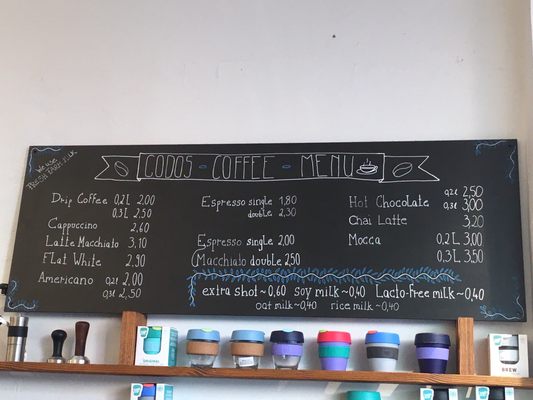 We use
FRESH FARM MILK
CODOS - COFFEE - MENU
Drip Coffee 0,2L 2,00
0,3L 2,50
Cappuccino 2,60
Latte Macchiato 3,10
Flat White 2,90
Americano 0,2L 2,00
0,3L 2,50
Espresso single 1,80
double 2,30
Espresso single 2,00
(Macchiato double 2,50
Hot Chocolate 0,2L 2,50
0,3L 3,00
Chai Latte 3,20
Mocca 0,2L 3,00
0.3L 3,50
extra shot ~0,60 soy milk ~0,40 Lacto-free milk ~0,40
oat milk ~0,40 rice milk ~0,40
BREW